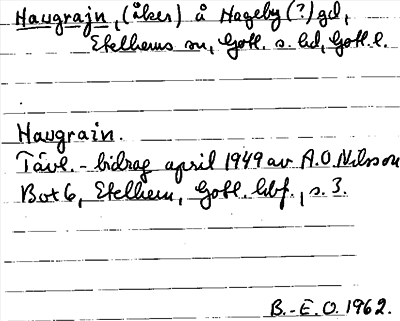 Haugrajn, (åker) å Hageby (?) gd,
Etelhems sn, Gotl. s. hd, Gotl. l.
Haugrain.
Tävl.-bidrag april 1949 av A.O. Nilsson
Box 6, Etelhem, Gotl. hbf., s. 3.
B.-E.O. 1962.